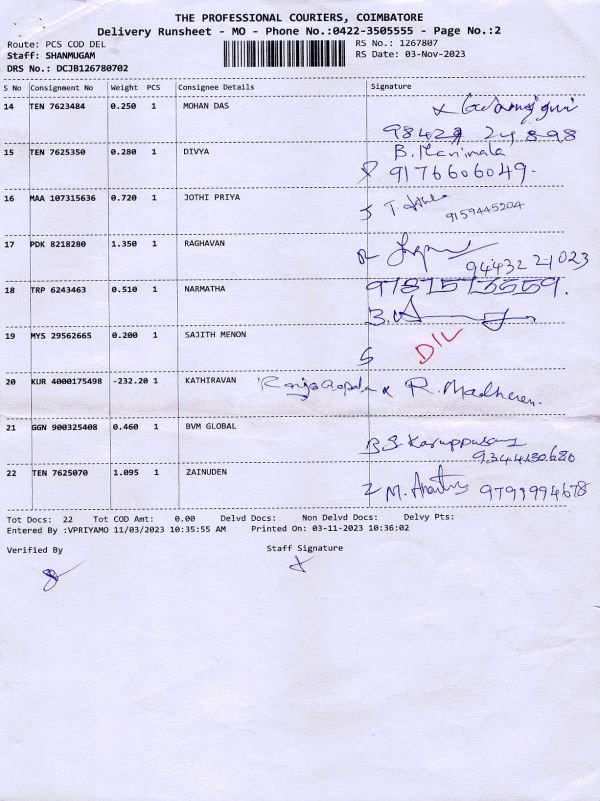 THE PROFESSIONAL COURIERS, COIMBATORE
Delivery Runsheet - MO - Phone No.:0422-3505555 - Page No.:2
Route: PCS COD DEL RS No.: 1267807
Staff: SHANMUGAM RS Date: 03-Nov-2023
DRS No.: DCJB126780702
S No Consignment No Weight PCS Consignee Details Signature
14 TEN 7623484 0.250 1 MOHAN DAS
15 TEN 7625350 0.280 1 DIVYA B.
9176606049.
16 MAA 107315636 0.720 1 JOTHI PRIYA T.
9159445204
17 PDK 8218280 1.350 1 RAGHAVAN
94432 21023
18 TRP 6243463 0.510 1 NARMATHA
19 MYS 29562665 0.200 1 SAJITH MENON
20 KUR 4000175498 -232.20 1 KATHIRAVAN R.
21 GGN 900325408 0.460 1 BVM GLOBAL
22 TEN 7625070 1.095 1 ZAINUDEN M.
9791994678
Tot Docs: 22 Tot COD Amt: 0.00 Delvd Docs: Non Delvd Docs: Delvy Pts:
Entered By :VPRIYAMO 11/03/2023 10:35:55 AM Printed On: 03-11-2023 10:36:02
Verified By Staff Signature